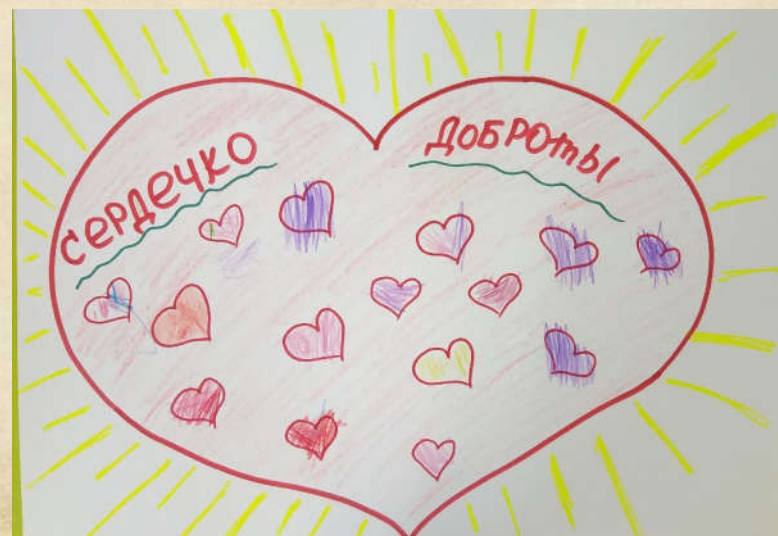 СЕРДЕЧКО ДОБРОТЫ